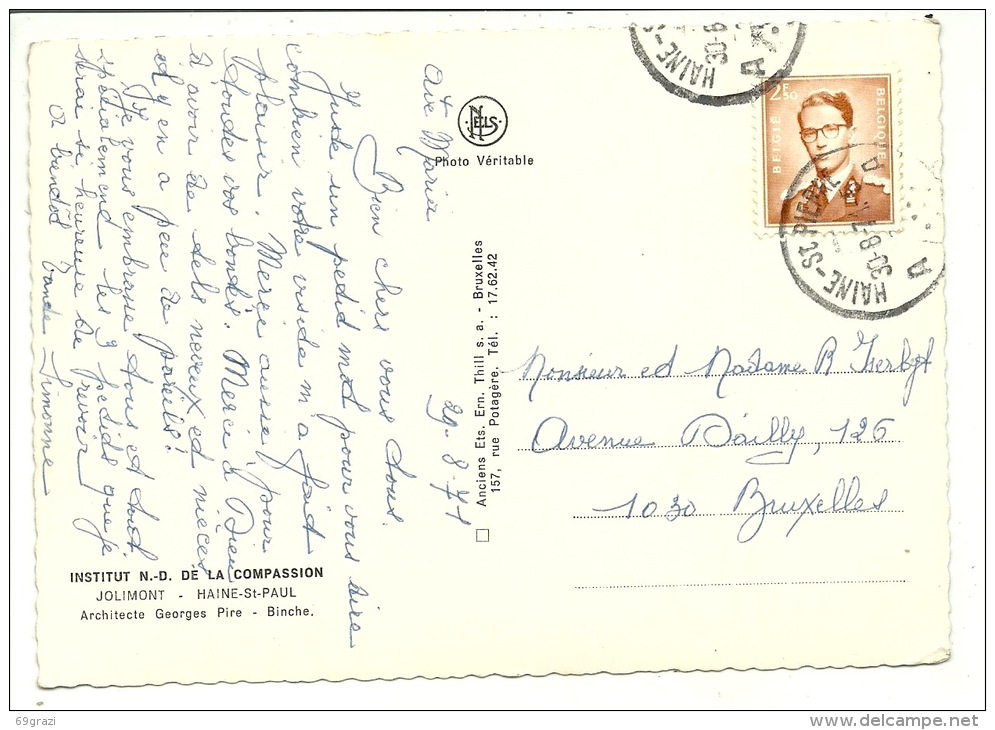 Ave Maria
29-8-71
Bien chers vous tous.
Juste un petit mot pour vous dire
combien votre visite m'a fait
plaisir. Merci aussi pour
toutes vos bontés. Merci à Dieu
d'avoir de tels neveux et nièces
et y en a peu de pareils!
Je vous embrasse tous et tout
spécialement les 3 petits que je
serai si heureuse de revoir
A bientôt Tante Simonne
INSTITUT N.-D. DE LA COMPASSION
JOLIMONT - HAINE-St-PAUL
Architecte Georges Pire - Binche.
NELS
Photo Véritable
Anciens Ets. Ern. Thill s. a. - Bruxelles
157, rue Potagère. Tél. : 17.62.42
HAINE-S
30-8
A
2F50
BELGIE
BELGIQUE
HAINE-St-PIERRE
30-8-71
A
Monsieur et Madame R
Avenue Dailly, 126
1030 Bruxelles
69grazi
delcampe.net